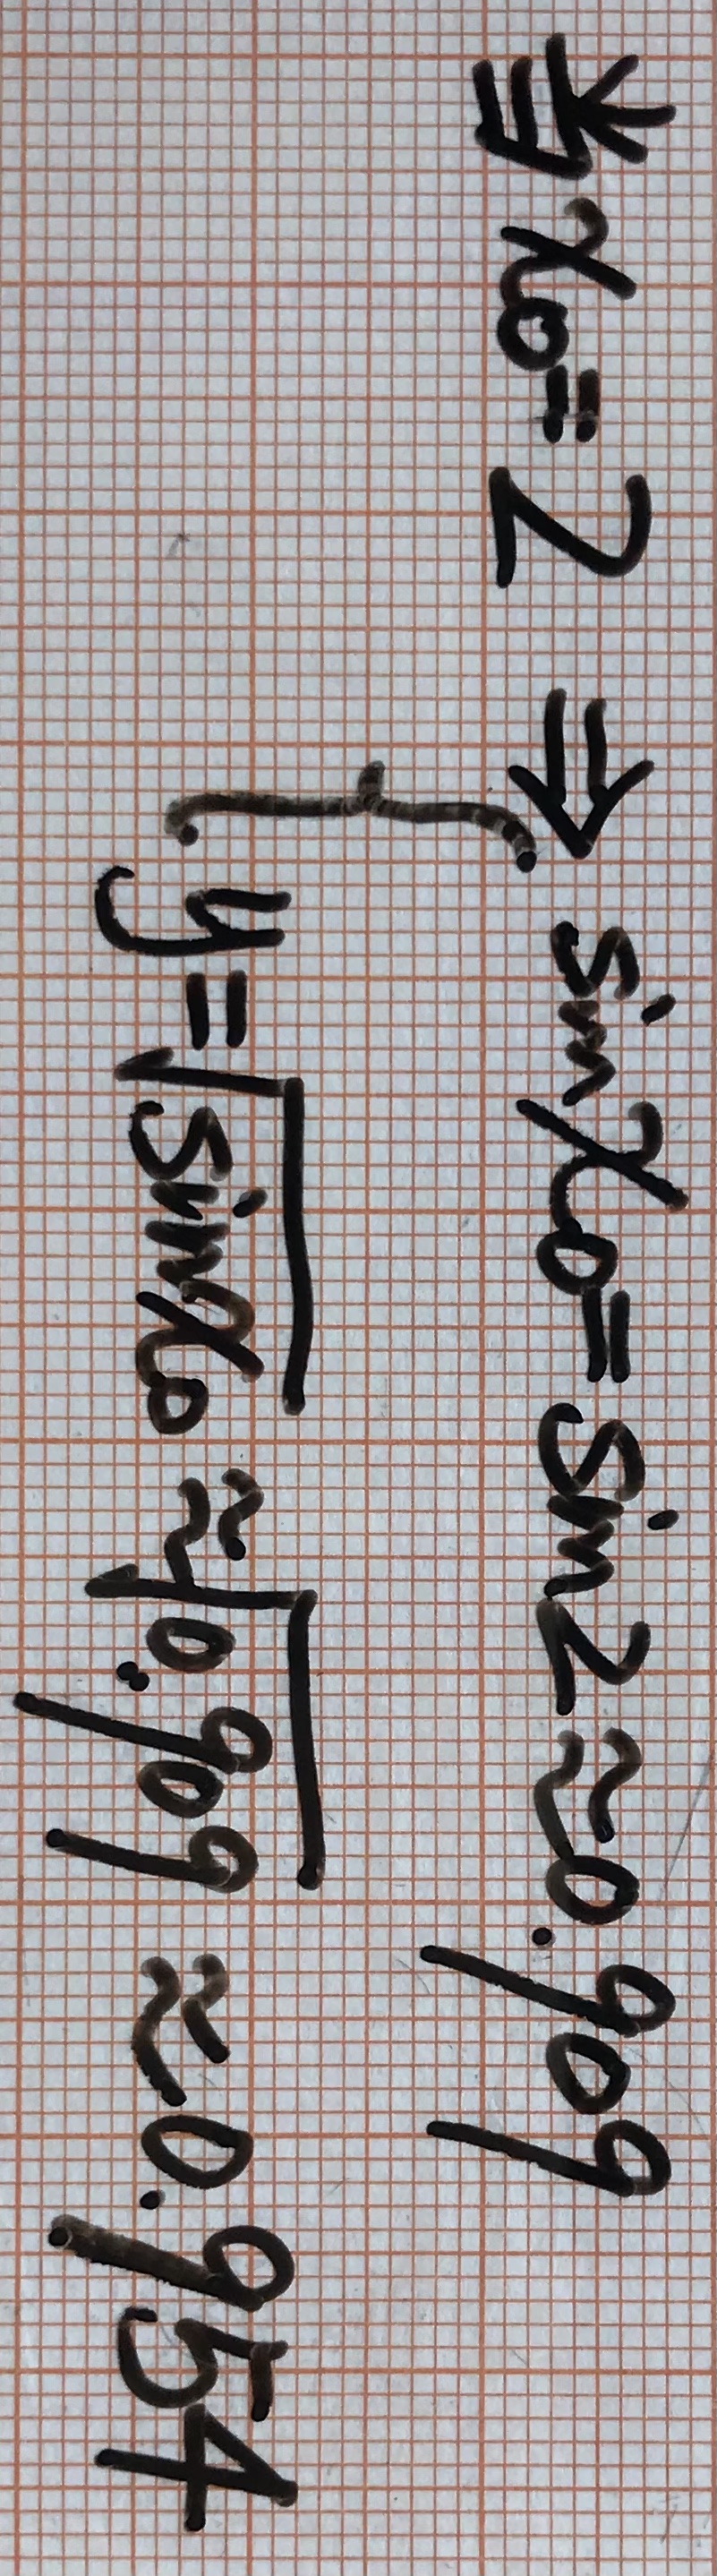 当x₀=2 ⇒ sinx₀=sin2≈0.909
y=√sinx₀ ≈√0.909 ≈0.954